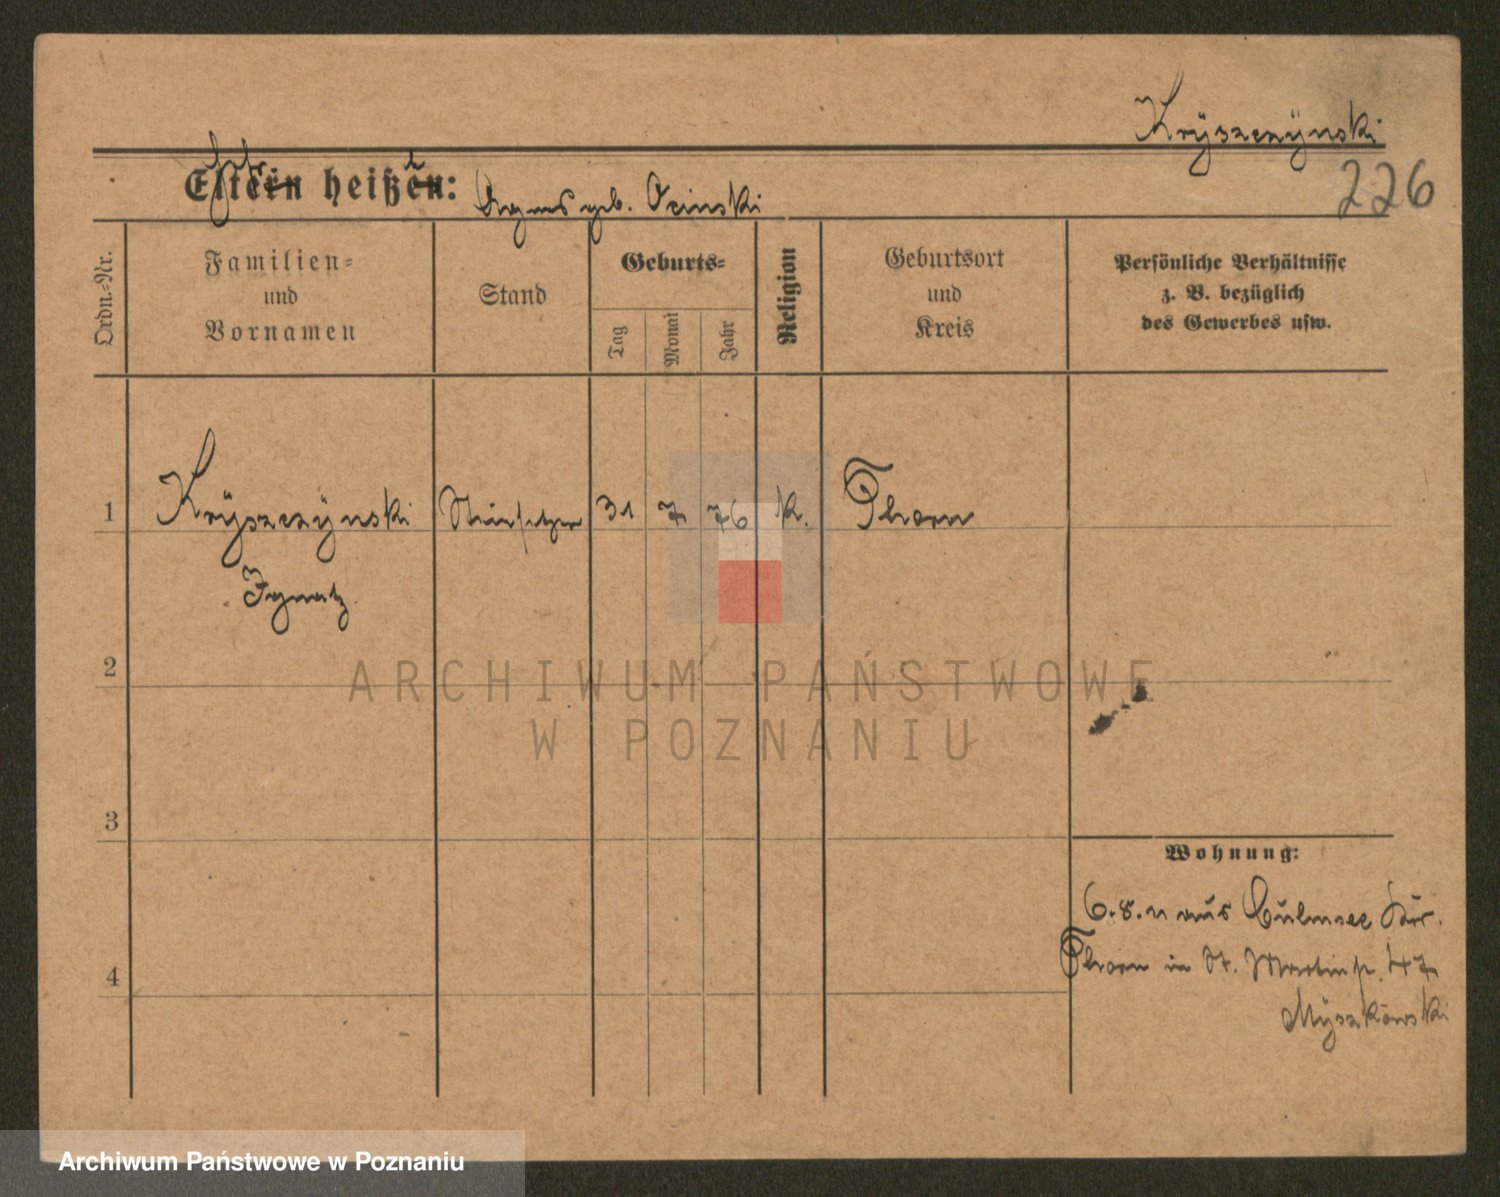 Kryszczÿnski
226
Eltern heißen: Agnes geb. Osinski
Ordn.-Nr.
Familien-
und
Vornamen
Stand
Geburts-
Tag
Monat
Jahr
Religion
Geburtsort
und
Kreis
Persönliche Verhältnisse
z. B. bezüglich
des Gewerbes usw.
1 Krÿszczÿnski Steinsetzer 31 7 76 k. Thorn
Ignatz
2
ARCHIWUM PAŃSTWOWE
W POZNANIU
3
Wohnung:
6.8.11 aus Culmsee Kr.
4
Thorn in St. Martinstr. 47
Mÿszkowski
Archiwum Państwowe w Poznaniu